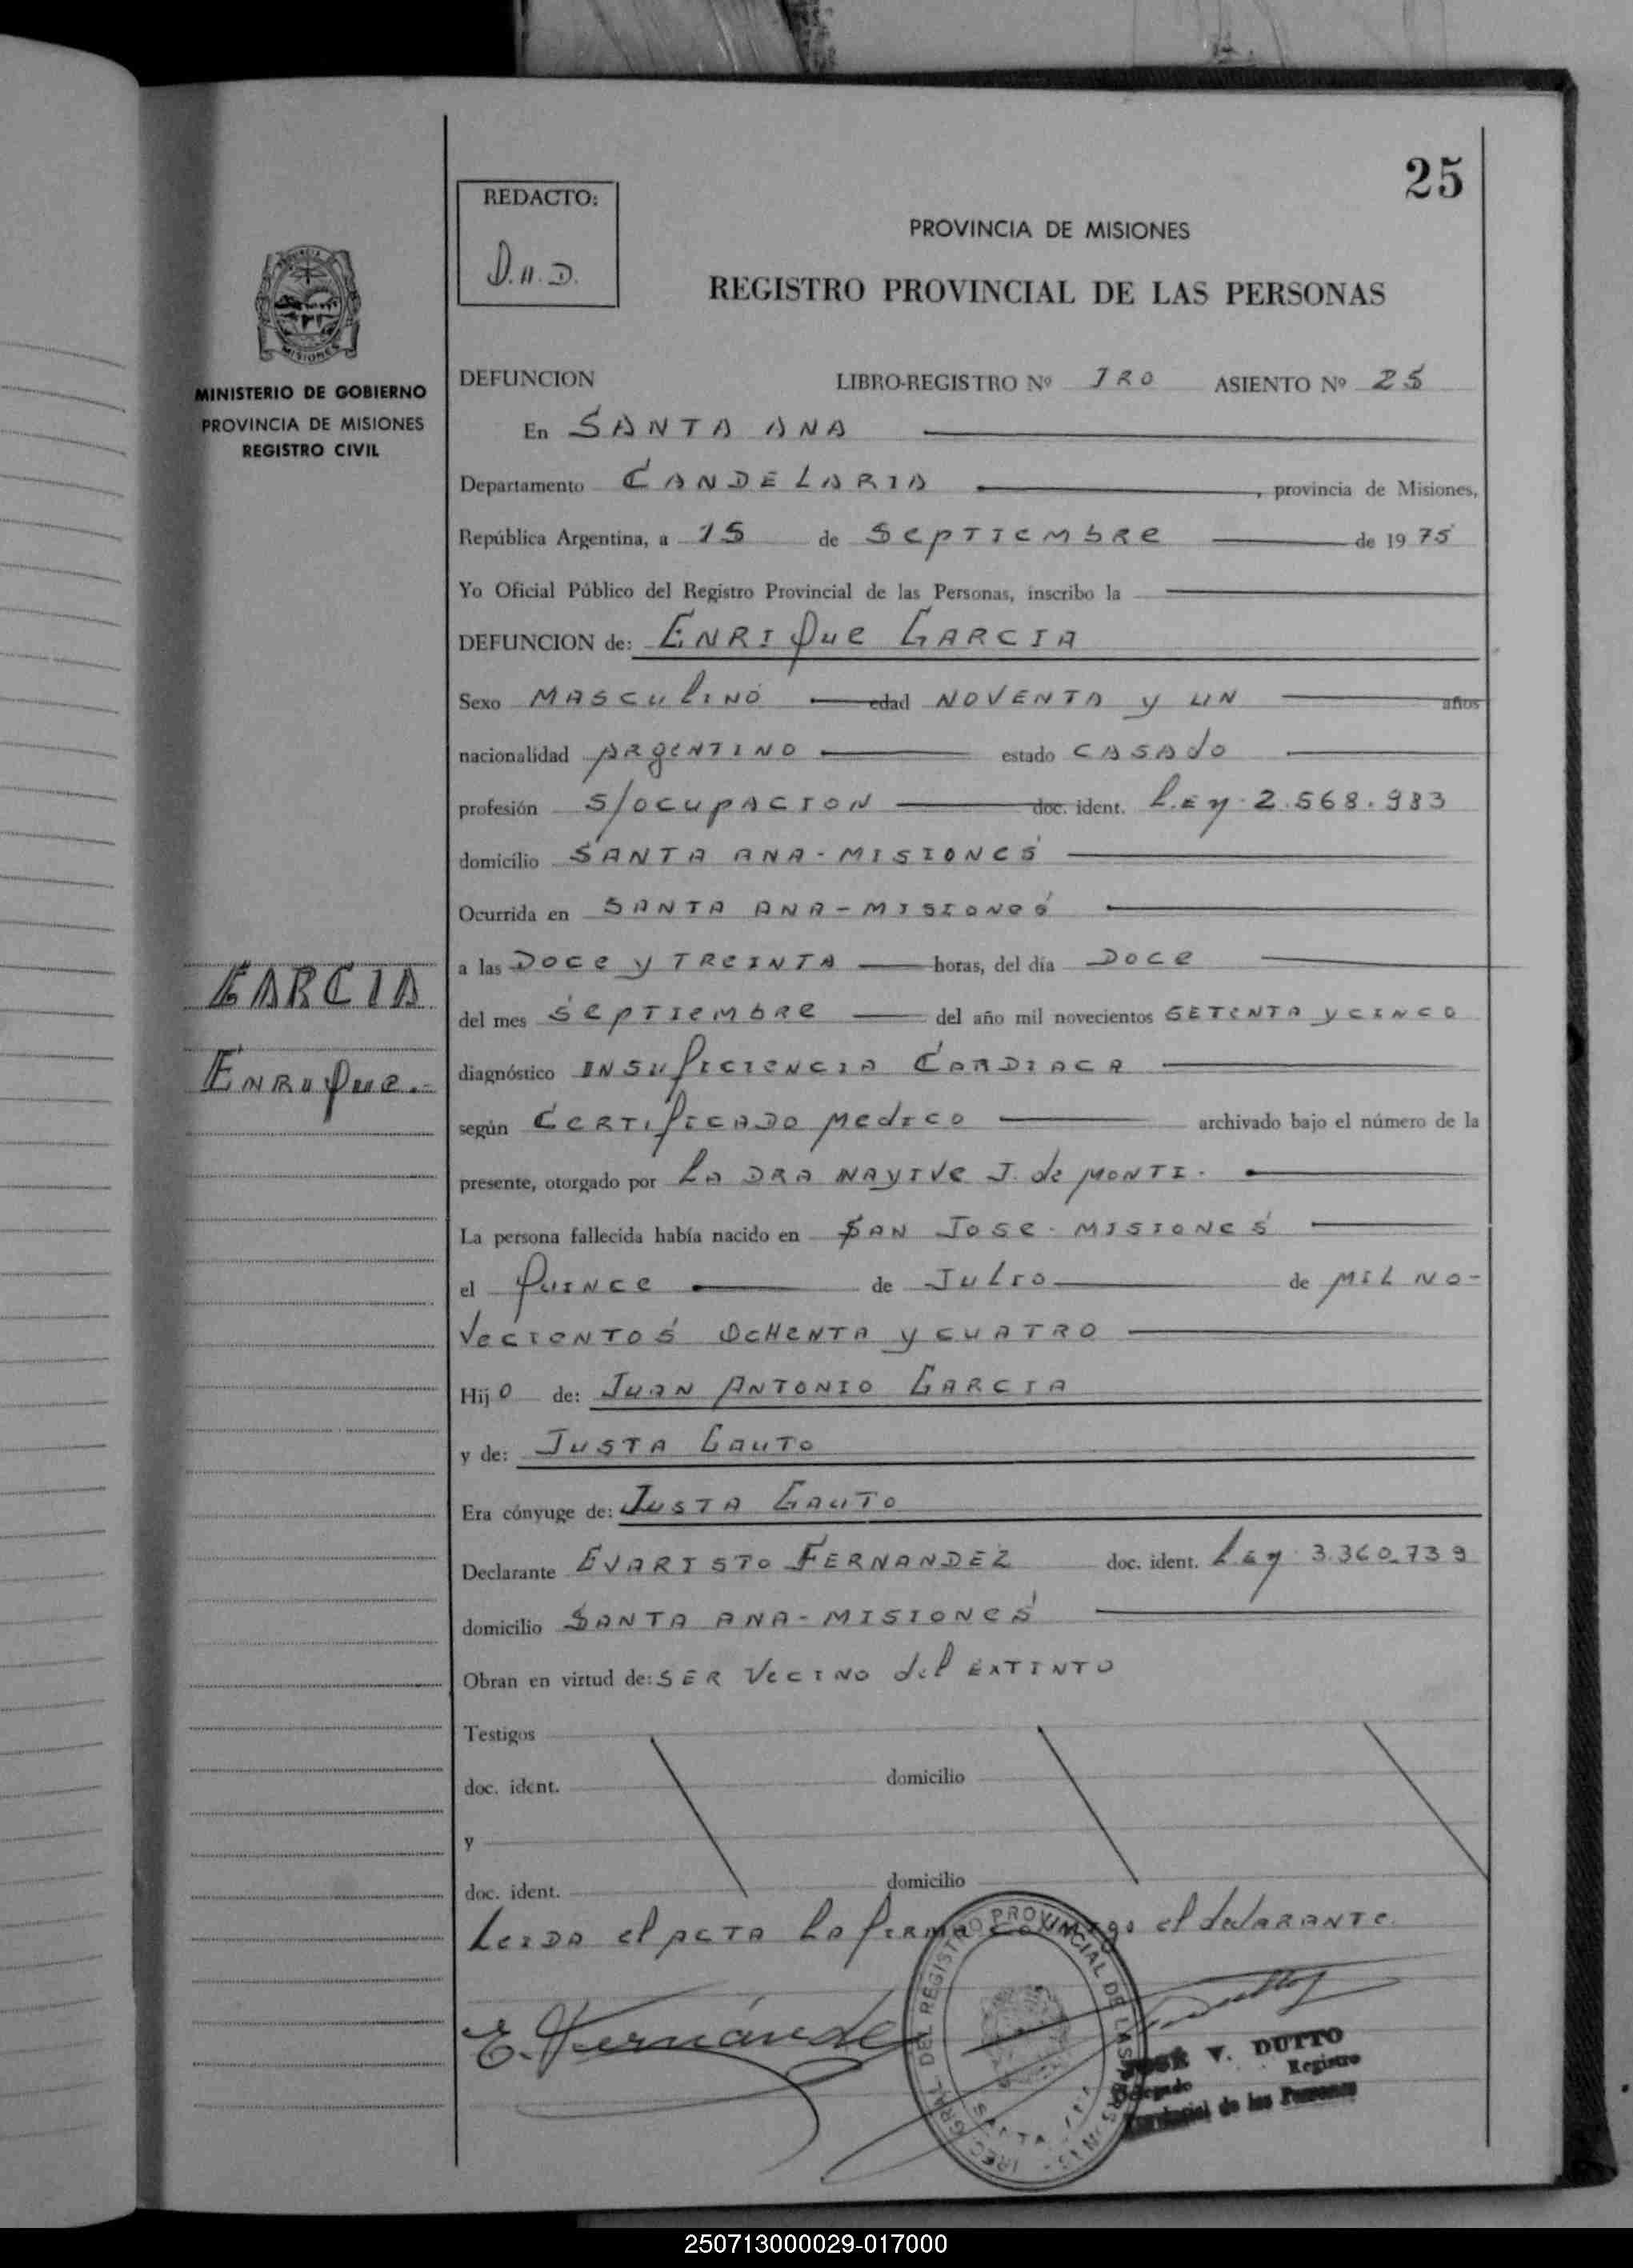 25
REDACTO:
D.H.D.
PROVINCIA DE MISIONES
REGISTRO PROVINCIAL DE LAS PERSONAS
MINISTERIO DE GOBIERNO
PROVINCIA DE MISIONES
REGISTRO CIVIL
DEFUNCION LIBRO-REGISTRO Nº 1RO ASIENTO Nº 25
En SANTA ANA
Departamento CANDELARIA, provincia de Misiones,
República Argentina, a 15 de SepTIEMBRe de 1975
Yo Oficial Público del Registro Provincial de las Personas, inscribo la
DEFUNCION de: ENRIQue GARCIA
Sexo MASCuliNO edad NOVENTA y UN años
nacionalidad ARgeNTINO estado CASADo
profesión S/OCUPACION doc. ident. L.E Nº 2.568.983
domicilio SANTA ANA-MISIONeS
Ocurrida en SANTA ANA-MISIONeS
a las DOCe y TReINTA horas, del día DOCe
del mes SepTIeMbRe del año mil novecientos SETeNTA y CINCO
diagnóstico INSufICIeNCIA CARDIACA
según CeRTIfICADO MedICO archivado bajo el número de la
presente, otorgado por LA DRA NAYIVe J. de MONTI.
La persona fallecida había nacido en SAN JOSe - MISIONeS
el QuINCe de JuLIO de MIL NO-
VeCIeNTOS OCHeNTA y CUATRO
Hijo de: JuAN ANTONIO GARCIA
y de: JuSTA GAuTO
Era cónyuge de: JuSTA GAuTO
Declarante EVARISTO FERNANDEZ doc. ident. L E Nº 3.360.739
domicilio SANTA ANA-MISIONeS
Obran en virtud de: SER VeCINO del EXTINTO
Testigos
doc. ident. domicilio
y
doc. ident. domicilio
GARCIA
ENRIQue.-
LeIDA el ACTA LA fIRMA el declARANTe.
E. Fernández
REGISTRO PROVINCIAL DE LAS PERSONAS
JOSÉ V. DUTTO
Delegado Registro
Provincial de las Personas
250713000029-017000